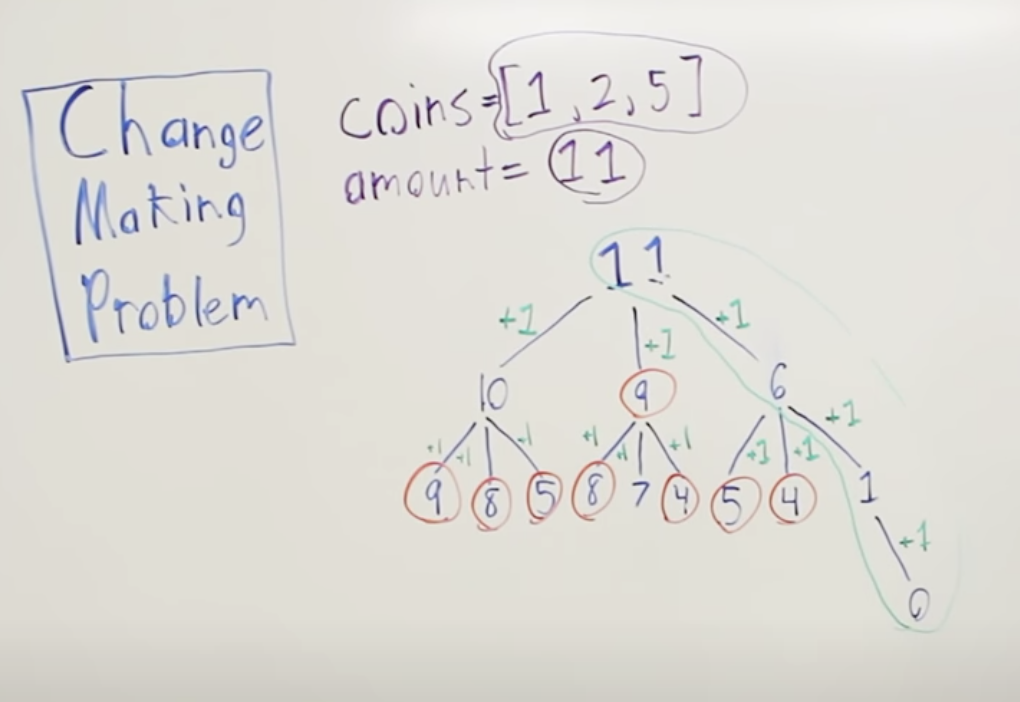 Change
Making
Problem
coins=[1,2,5]
amount= 11
11
+1 +1 +1
10 9 6
+1 +1 +1 +1 +1 +1 +1 +1 +1
9 8 5 8 7 4 5 4 1
+1
0